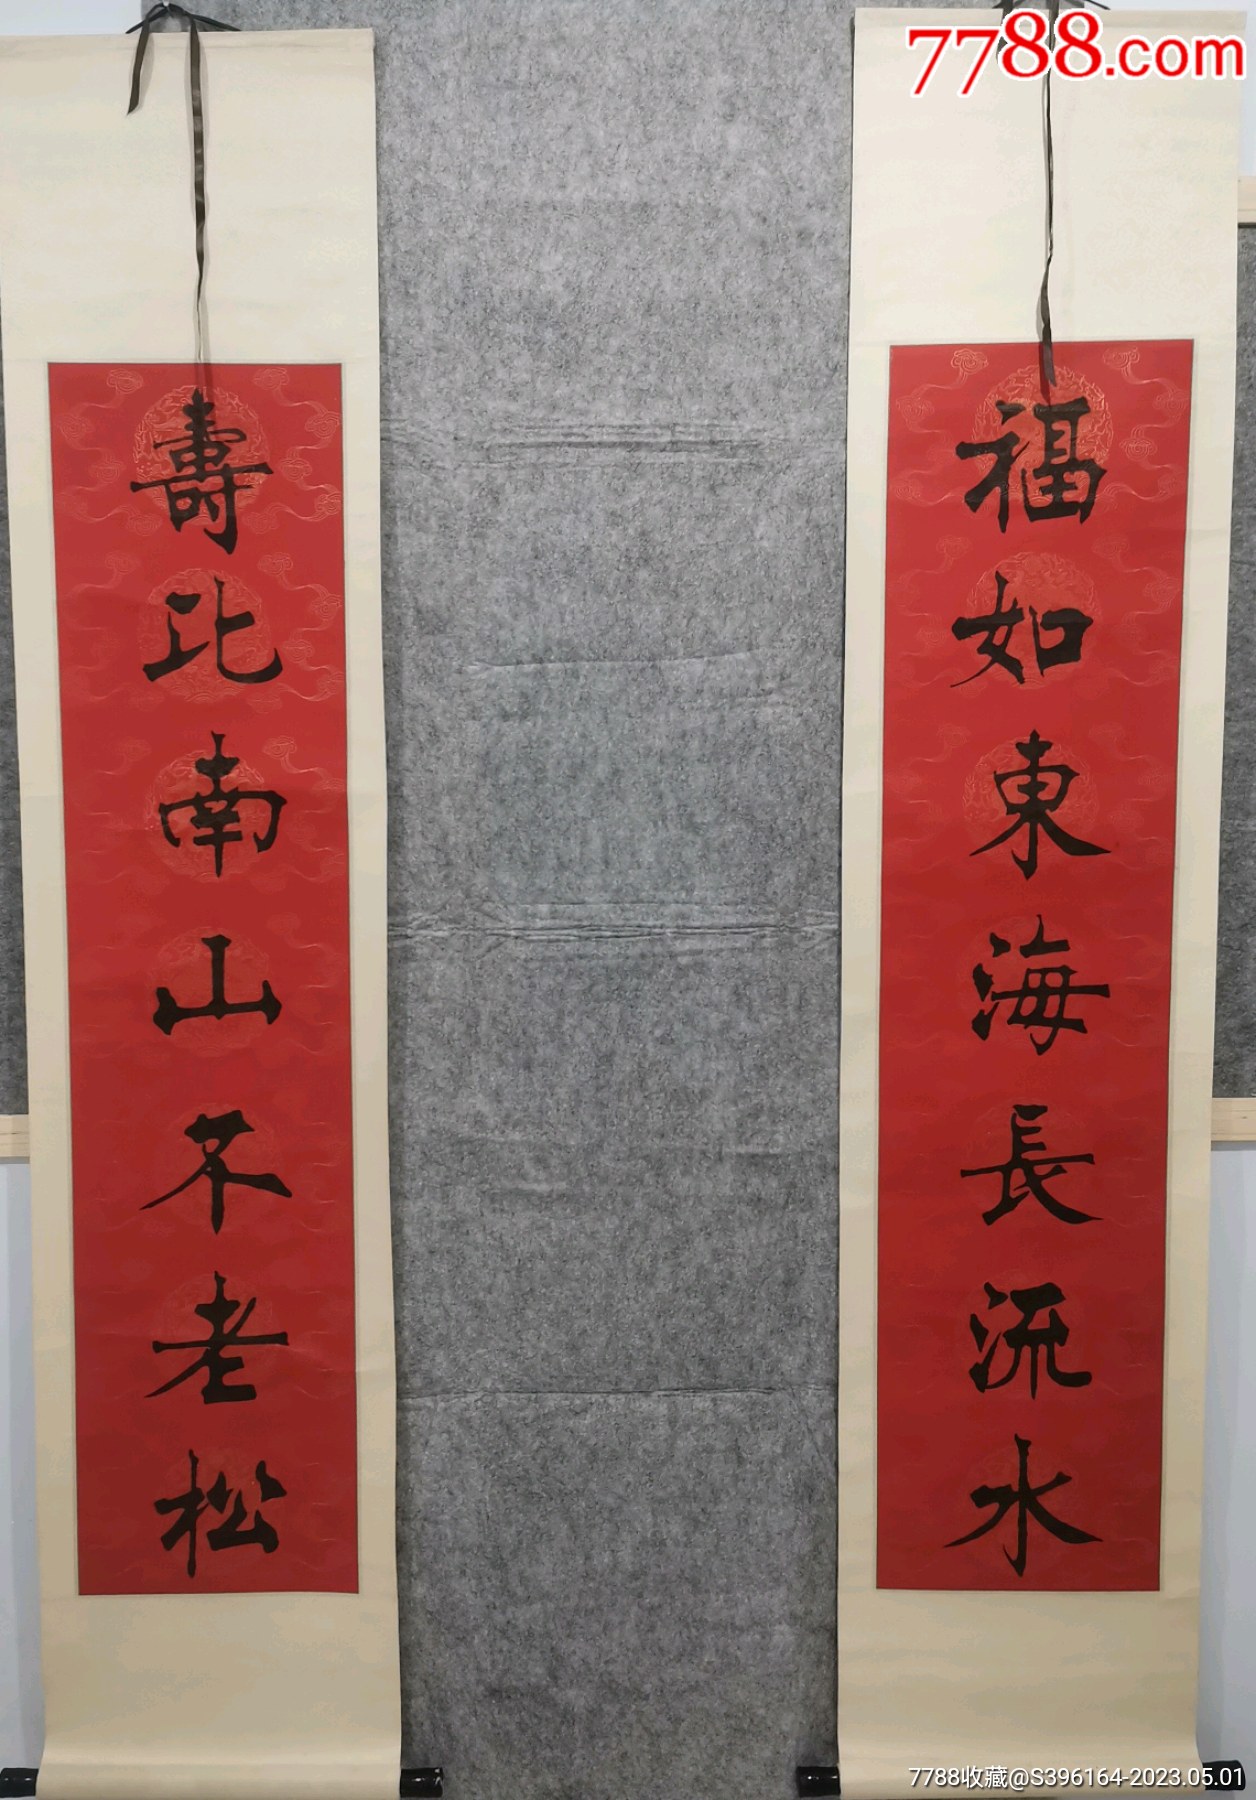 7788.com
福如東海長流水
壽比南山不老松
7788收藏@S396164-2023.05.01